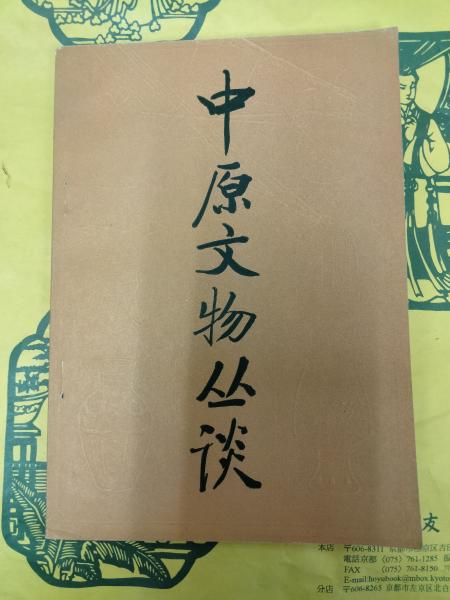 中原文物丛谈
友
本店 〒606-8311 京都市左京区吉
電話京都 (075) 761-1285
FAX (075) 761-8150
E-mail:hoyubook@mbox.kyoto
分店 〒606-8265 京都市左京区北白